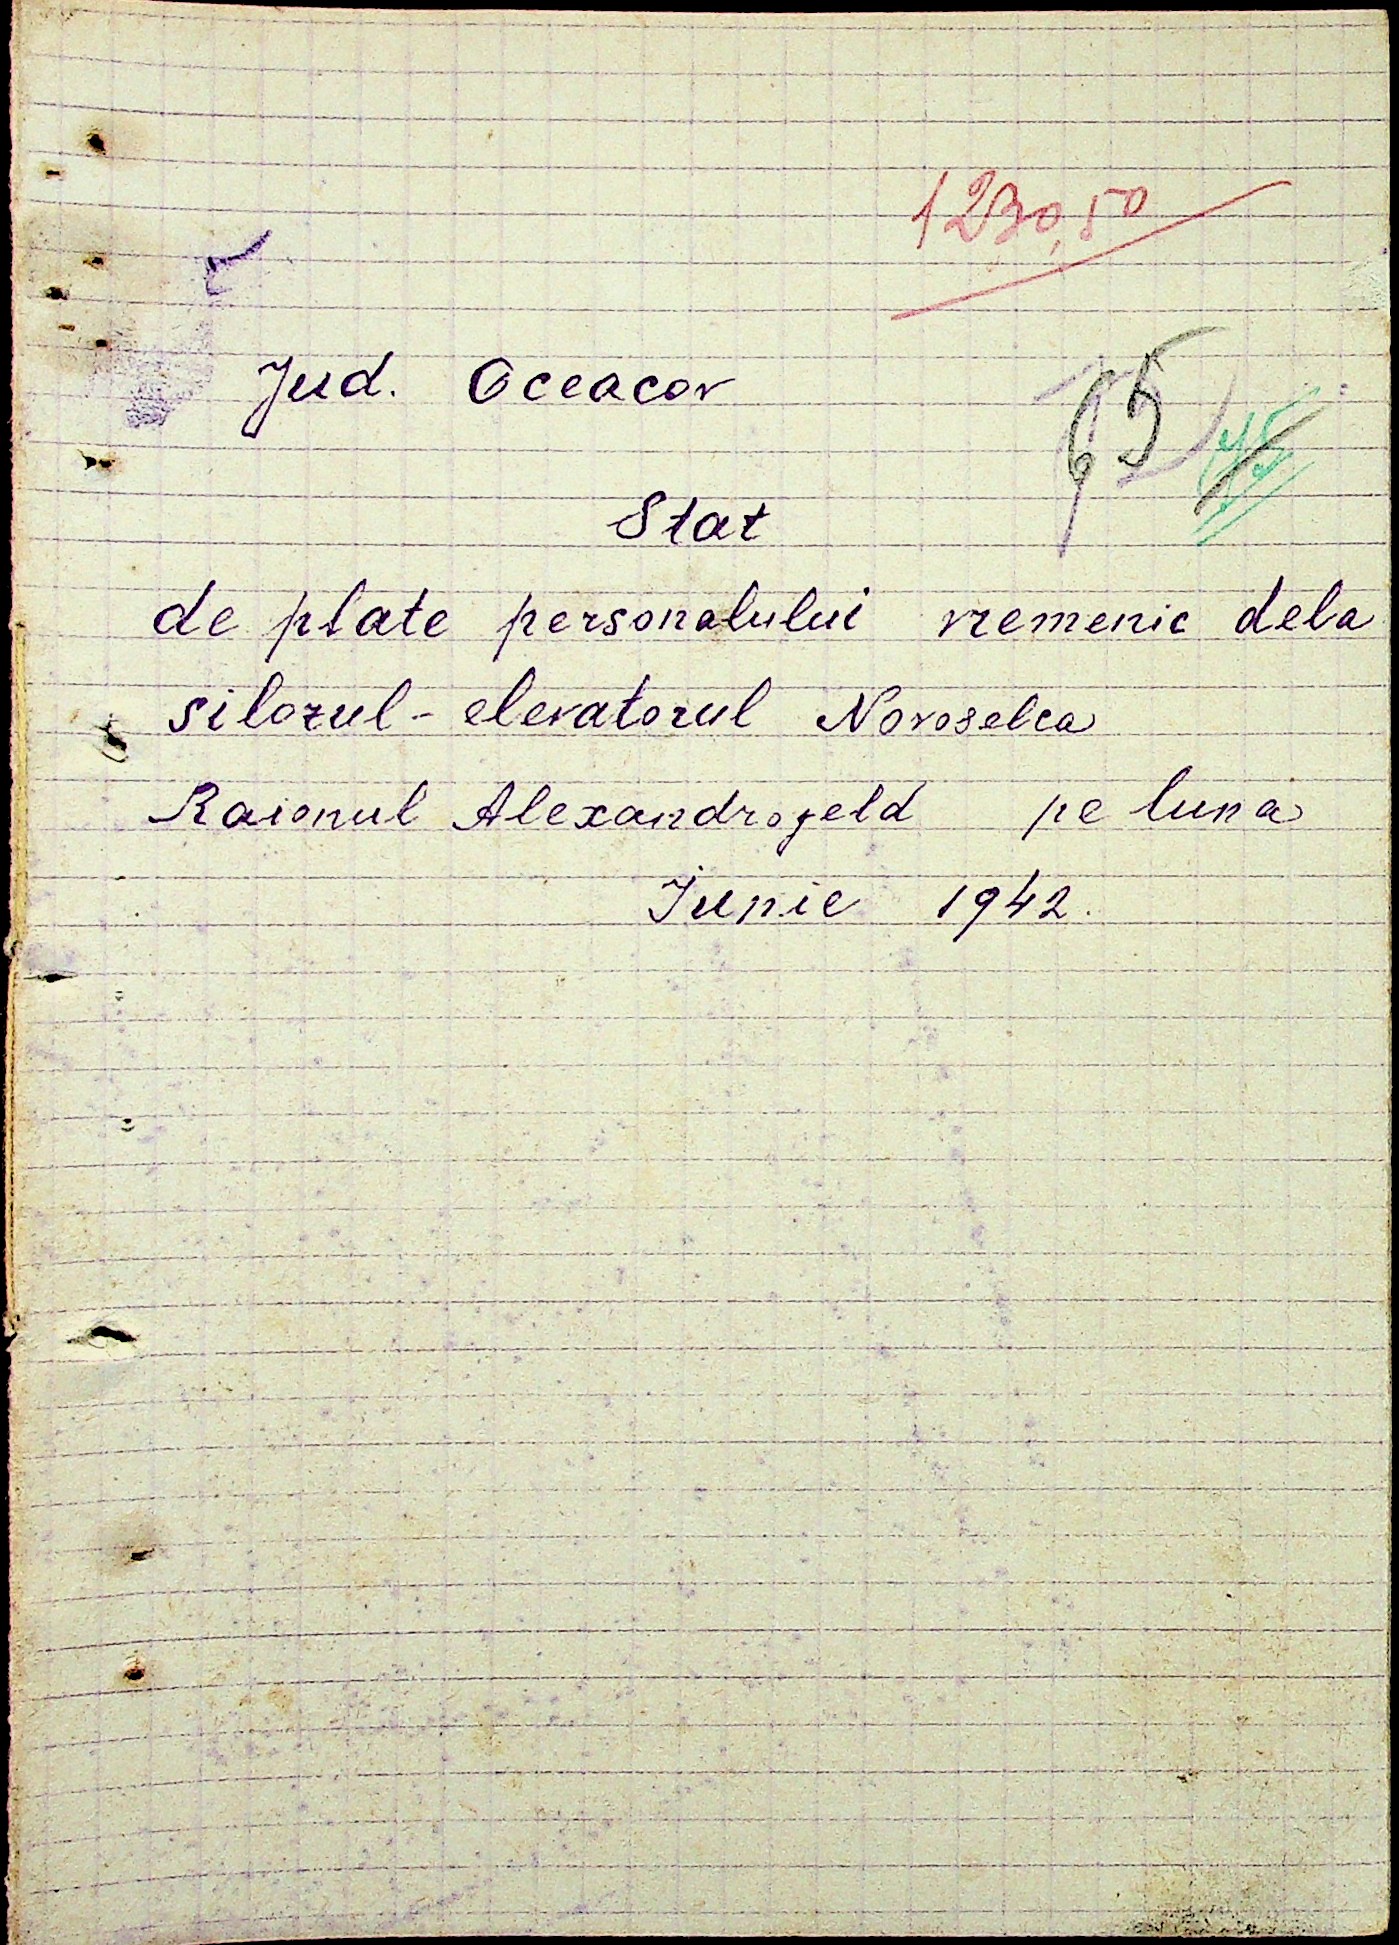 1230,50
Jud. Oceacov
95
Stat
de plate personalului vremenic dela
silozul-elevatorul Novoselca
Raionul Alexandrofeld pe luna
Junie 1942.